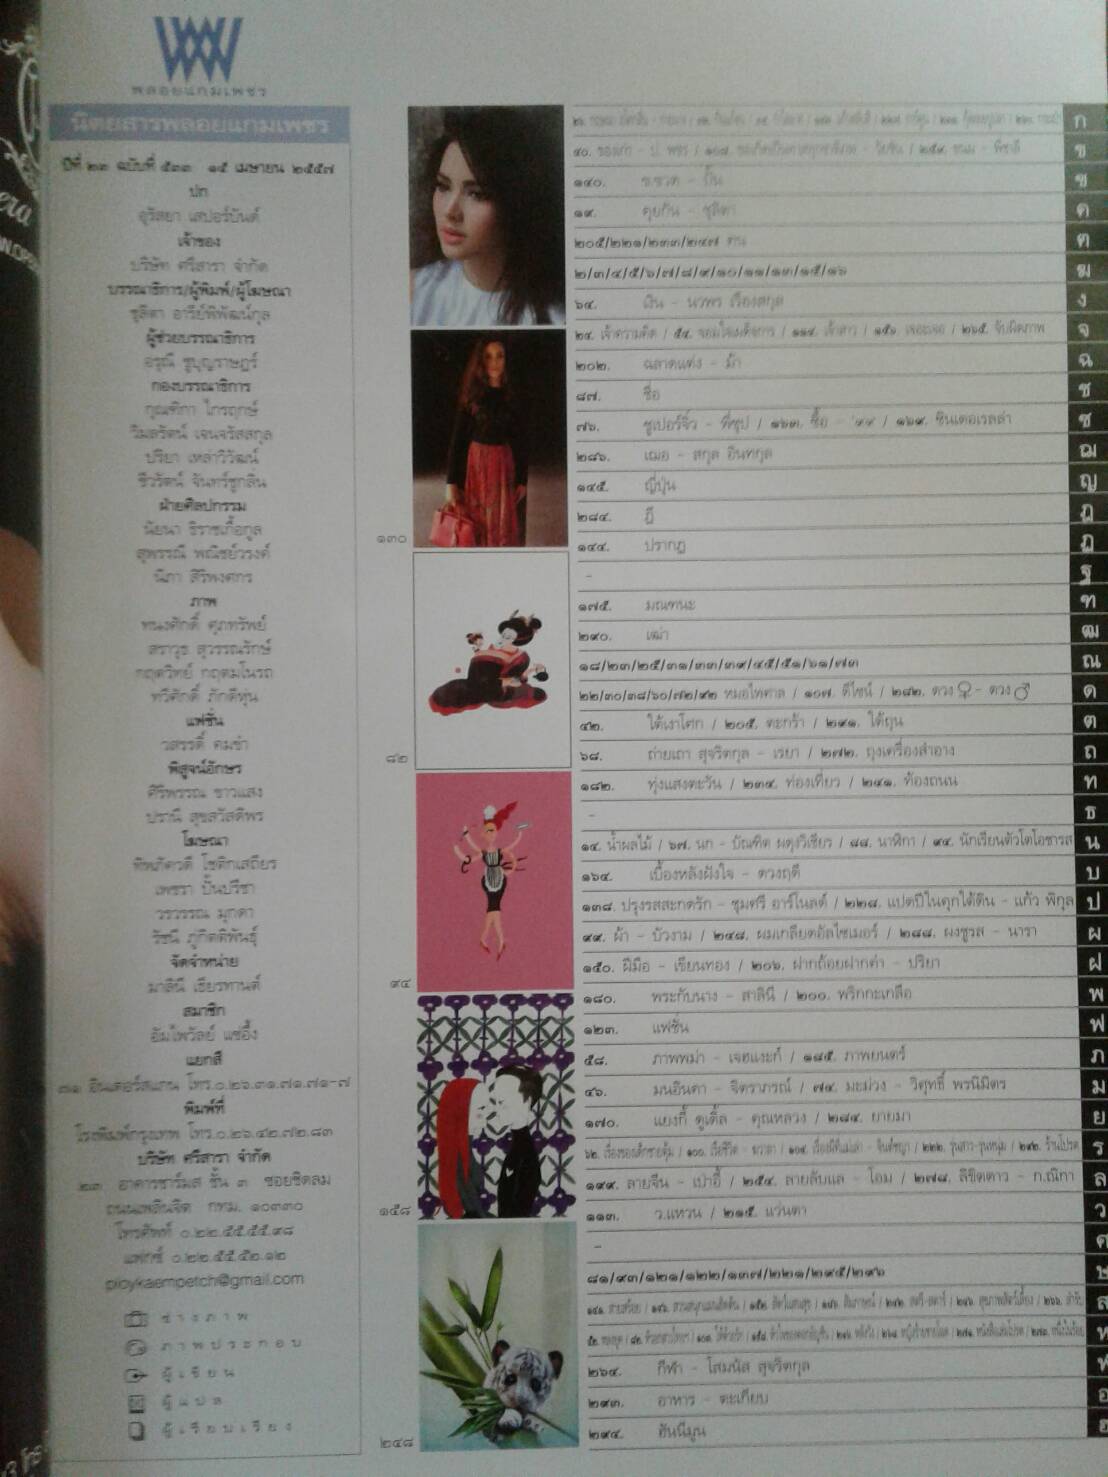 พลอยแกมเพชร
นิตยสารพลอยแกมเพชร
ปีที่ ๒๓ ฉบับที่ ๕๓๓ ๑๕ เมษายน ๒๕๕๗
ปก
อุรัสยา เสปอร์บันด์
เจ้าของ
บริษัท ศรีสารา จำกัด
บรรณาธิการ/ผู้พิมพ์/ผู้โฆษณา
ชุลิตา อารีย์พิพัฒน์กุล
ผู้ช่วยบรรณาธิการ
อรุณี ชูบุญราษฎร์
กองบรรณาธิการ
กุณฑิกา ไกรฤกษ์
วิมลรัตน์ เจนจรัสสกุล
ปรียา เหล่าวิวัฒน์
ชีวรัตน์ จันทร์ชูกลิ่น
ฝ่ายศิลปกรรม
นัยนา ธิราชเกื้อกูล
สุพรรณี พณิชย์วรงค์
นิภา สิริพงศกร
ภาพ
ทนงศักดิ์ ศุภทรัพย์
สราวุธ สุวรรณรักษ์
กฤตวิทย์ กฤตมโนรถ
ทวีศักดิ์ ภักดีหุ่น
แฟชั่น
วสรรดิ์ คมขำ
พิสูจน์อักษร
ศิริพรรณ ขาวแสง
ปรานี สุขสวัสดิพร
โฆษณา
ทิพภัควดี โชติกเสถียร
เพชรา ปั้นปรีชา
วรวรรณ มุกดา
รัชนี ภู่กิตติพันธุ์
จัดจำหน่าย
มาลินี เธียรทานต์
สมาชิก
อัมไพวัลย์ แซ่อึ้ง
แยกสี
๗๑ อินเตอร์สแกน โทร.๐.๒๖.๓๑.๗๑.๗๑-๗
พิมพ์ที่
โรงพิมพ์กรุงเทพ โทร.๐.๒๖.๔๒.๗๒.๘๓
บริษัท ศรีสารา จำกัด
๒๓ อาคารชาร์มส ชั้น ๓ ซอยชิดลม
ถนนเพลินจิต กทม. ๑๐๓๓๐
โทรศัพท์ ๐.๒๒.๕๕.๕๕.๙๘
แฟกซ์ ๐.๒๒.๕๕.๕๒.๑๒
ploykaempetch@gmail.com
ช่างภาพ
ภาพประกอบ
ผู้เขียน
ผู้แปล
ผู้เรียบเรียง
๑๓๐
๘๒
๙๔
๑๕๘
๒๔๘
ก
ข
๑๔๐. ฃ
๑๙. คุยกัน - ชุลิตา ค
๒๐๕/๒๒๑/๒๓๓/๒๔๗ ฅน ฅ
๒/๓/๔/๕/๖/๗/๘/๙/๑๐/๑๑/๑๓/๑๕/๑๖ ฆ
๖๔. เงิน - นวพร เรืองสกุล ง
๒๔. เจ้าความคิด / ๕๔. จอมใจเผด็จการ / ๑๑๔. เจ้าสาว / ๑๕๖. เจอะเจอ / ๒๖๕. จับผิดภาพ จ
๒๐๒. ฉลาดแต่ง - ม้า ฉ
๘๗. ชื่อ ช
๗๖. ซูเปอร์จิ๋ว - พี่ซุป / ๑๖๓. ซื้อ - '๙๙ / ๑๖๙. ซินเดอเรลล่า ซ
๒๘๖. เฌอ - สกุล อินทกุล ฌ
๑๔๕. ญี่ปุ่น ญ
๒๘๔. ฎี ฎ
๑๔๔. ปรากฏ ฏ
- ฐ
๑๗๕. มณฑนะ ฑ
๒๙๐. เฒ่า ฒ
๑๘/๒๓/๒๕/๓๑/๓๓/๓๙/๔๕/๕๑/๖๑/๗๓ ณ
๒๒/๓๐/๓๘/๖๐/๗๒/๙๒ หมอไพศาล / ๑๐๗. ดีไซน์ / ๒๘๒. ดวง♀- ดวง♂ ด
๔๒. ใต้เงาโศก / ๒๐๕. ตะกร้า / ๒๙๑. ใต้ถุน ต
๖๘. ถ่ายเถา สุจริตกุล - เรยา / ๒๗๒. ถุงเครื่องสำอาง ถ
๑๘๒. ทุ่งแสงตะวัน / ๒๓๔. ท่องเที่ยว / ๒๔๑. ท้องถนน ท
- ธ
๑๔. น้ำผลไม้ / ๖๗. นก - บัณฑิต ผดุงวิเชียร / ๘๘. นาฬิกา / ๙๔. นักเรียนตัวโตโอชารส น
๑๖๔. เบื้องหลังฝังใจ - ดวงฤดี บ
๑๓๘. ปรุงรสสะกดรัก - ชุมศรี อาร์โนลด์ / ๒๒๘. แปดปีในคุกใต้ดิน - แก้ว พิกุล ป
๙๙. ผ้า - บัวงาม / ๒๔๘. ผมเกลียดอัลไซเมอร์ / ๒๘๘. ผงชูรส - นารา ผ
๑๕๐. ฝีมือ - เขียนทอง / ๒๐๖. ฝากถ้อยฝากคำ - ปริยา ฝ
๑๘๐. พระกับนาง - สาลินี / ๒๐๐. พริกกะเกลือ พ
๑๒๓. แฟชั่น ฟ
๕๘. ภาพพม่า - เจฮแงะก์ / ๑๘๕. ภาพยนตร์ ภ
๔๖. มนอินดา - จิตราภรณ์ / ๗๔. มะม่วง - วิศุทธิ์ พรนิมิตร ม
๑๗๐. แยงกี้ ดูเดิ้ล - คุณหลวง / ๒๘๔. ยายมา ย
ร
๑๙๙. ลายจีน - เป่าอี้ / ๒๕๔. ลายลับแล - โอม / ๒๗๘. ลิขิตดาว - ก.ณิกา ล
๑๑๓. ว.แหวน / ๒๑๕. แว่นตา ว
- ศ
๘๑/๙๓/๑๒๑/๑๒๒/๑๓๗/๒๒๑/๒๙๕/๒๙๖ ษ
ส
ห
๒๖๔. กีฬา - โสมนัส สุจริตกุล ฬ
๒๙๓. อาหาร - ตะเกียบ อ
๒๙๔. ฮันนีมูน ฮ